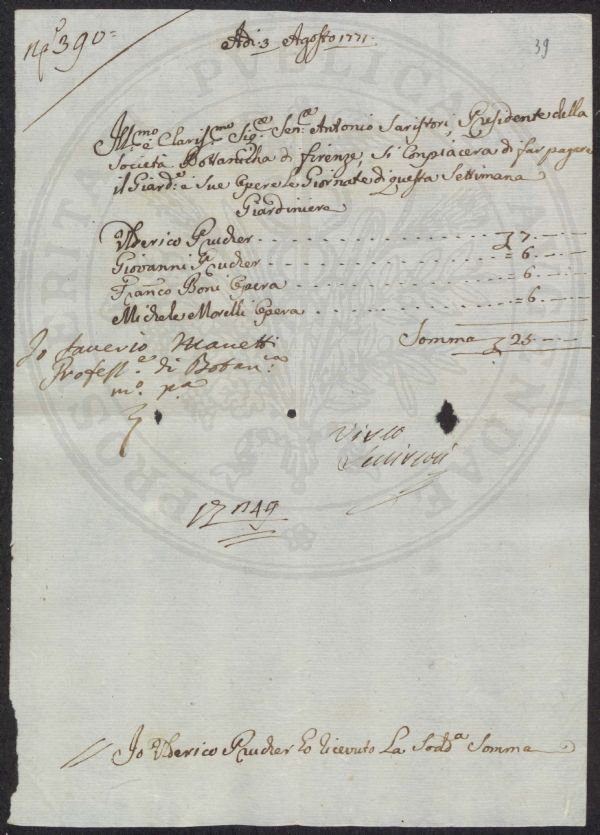 N.º 390=
Adi: 3 Agosto 1771.
39
Ill:mo e Claris:mo Sig:re Sen:re Antonio Saristori, Presidente della
Società Bottanicha di firenze, Si Conpiacera di far pagare
il Giard:e e Sue Opere Le Giornate di questa Settimana
Giardiniera
Ulderico Prucker . . . . . . . . . . . . . . . 7. — —
Giovanni Prucker . . . . . . . . . . . . . . = 6. — —
Franco Boni Opera . . . . . . . . . . . . . = 6 — —
Michele Morelli Opera . . . . . . . . . . . = 6. — —
Somma 25 — —
Io Saverio Manetti
Profess.e di Botan:ca
m.o p.a
Visto
1749
PROSPERITATI PUBLICAE
Io Ulderico Prucker ho ricevuto La Sodd.a Somma